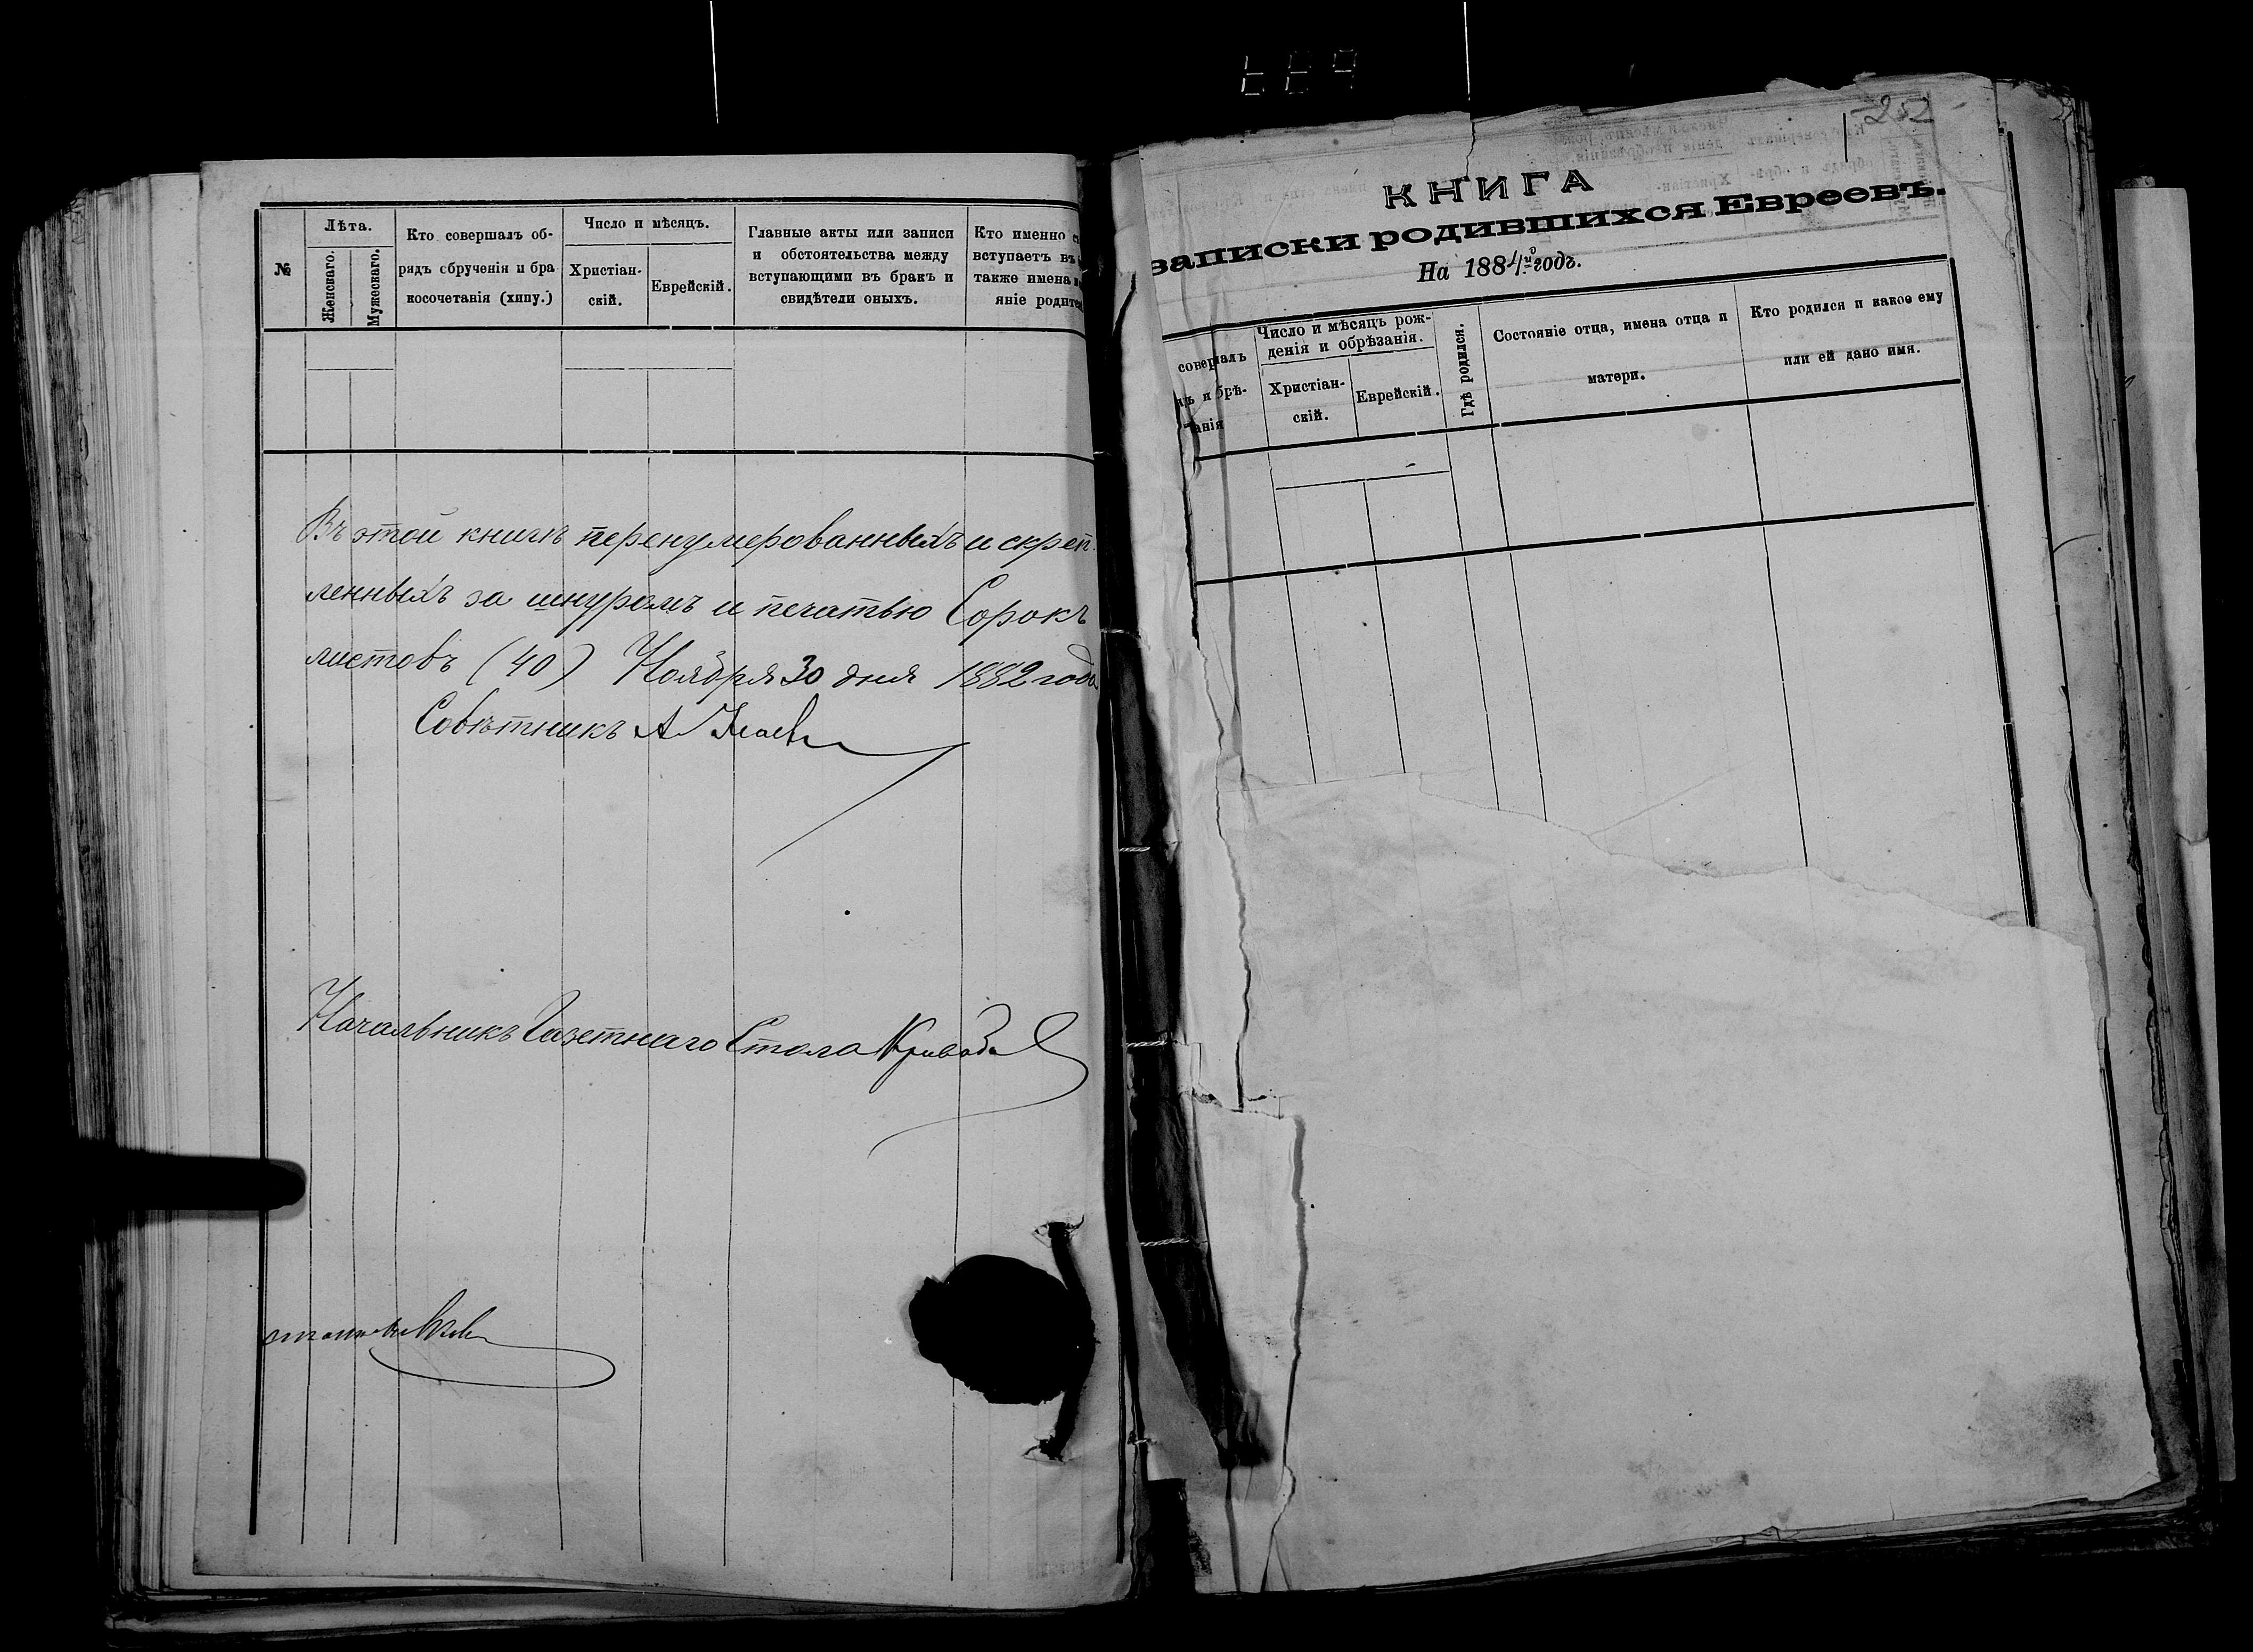 №
Лѣта.
Женскаго.
Мужескаго.
Кто совершалъ об-
рядъ обрученія и бра
косочетанія (хипу.)
Число и мѣсяцъ.
Христіан-
скій.
Еврейскій.
Главные акты или записи
и обстоятельства между
вступающими въ бракъ и
свидѣтели оныхъ.
Кто именно
вступаетъ въ
также имена
яніе родите
Въ этой книгѣ перенумерованныхъ и скреп-
ленныхъ за шнуромъ и печатью Сорокъ
листовъ (40) Ноября 30 дня 1882 года
Совѣтникъ А
Начальникъ Газетнаго Стола
252
КНИГА
записки родившихся Евреевъ.
На 1884й годъ.
совершалъ
дъ и брѣ-
занія
Число и мѣсяцъ рож-
денія и обрѣзанія.
Христіан-
скій.
Еврейскій.
Гдѣ родился.
Состояніе отца, имена отца и
матери.
Кто родился и какое ему
или ей дано имя.